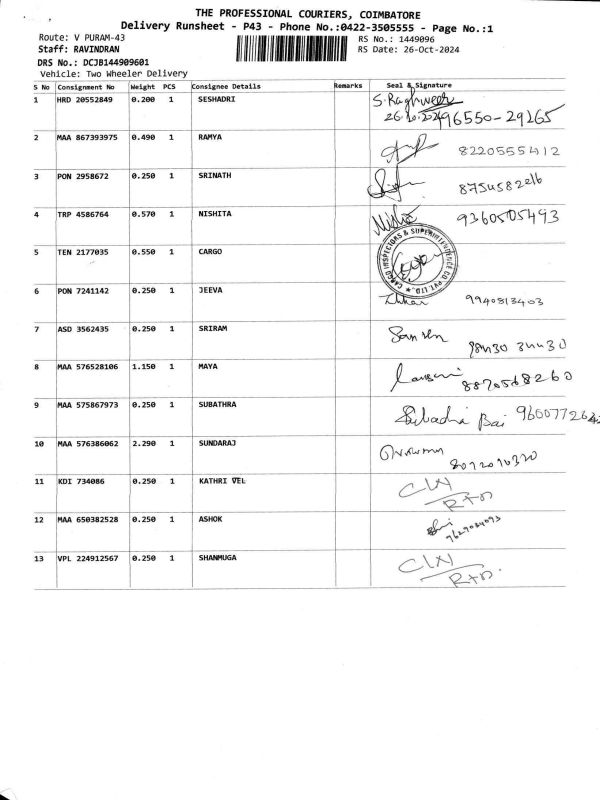 THE PROFESSIONAL COURIERS, COIMBATORE
Delivery Runsheet - P43 - Phone No.:0422-3505555 - Page No.:1
Route: V PURAM-43 RS No.: 1449096
Staff: RAVINDRAN RS Date: 26-Oct-2024
DRS No.: DCJB144909601
Vehicle: Two Wheeler Delivery
S No Consignment No Weight PCS Consignee Details Remarks Seal & Signature
1 HRD 20552849 0.200 1 SESHADRI S. Raghuveer
26.10.2024 96550-29265
2 MAA 867393975 0.490 1 RAMYA 8220555412
3 PON 2958672 0.250 1 SRINATH
4 TRP 4586764 0.570 1 NISHITA Nisha 9360505493
5 TEN 2177035 0.550 1 CARGO CARGO INSPECTORS & SUPERINTENDENCE CO PVT. LTD.
6 PON 7241142 0.250 1 JEEVA 9940813403
7 ASD 3562435 0.250 1 SRIRAM
8 MAA 576528106 1.150 1 MAYA 8870568260
9 MAA 575867973 0.250 1 SUBATHRA Subadra Bai
10 MAA 576386062 2.290 1 SUNDARAJ
11 KDI 734086 0.250 1 KATHRI VEL
12 MAA 650382528 0.250 1 ASHOK
13 VPL 224912567 0.250 1 SHANMUGA